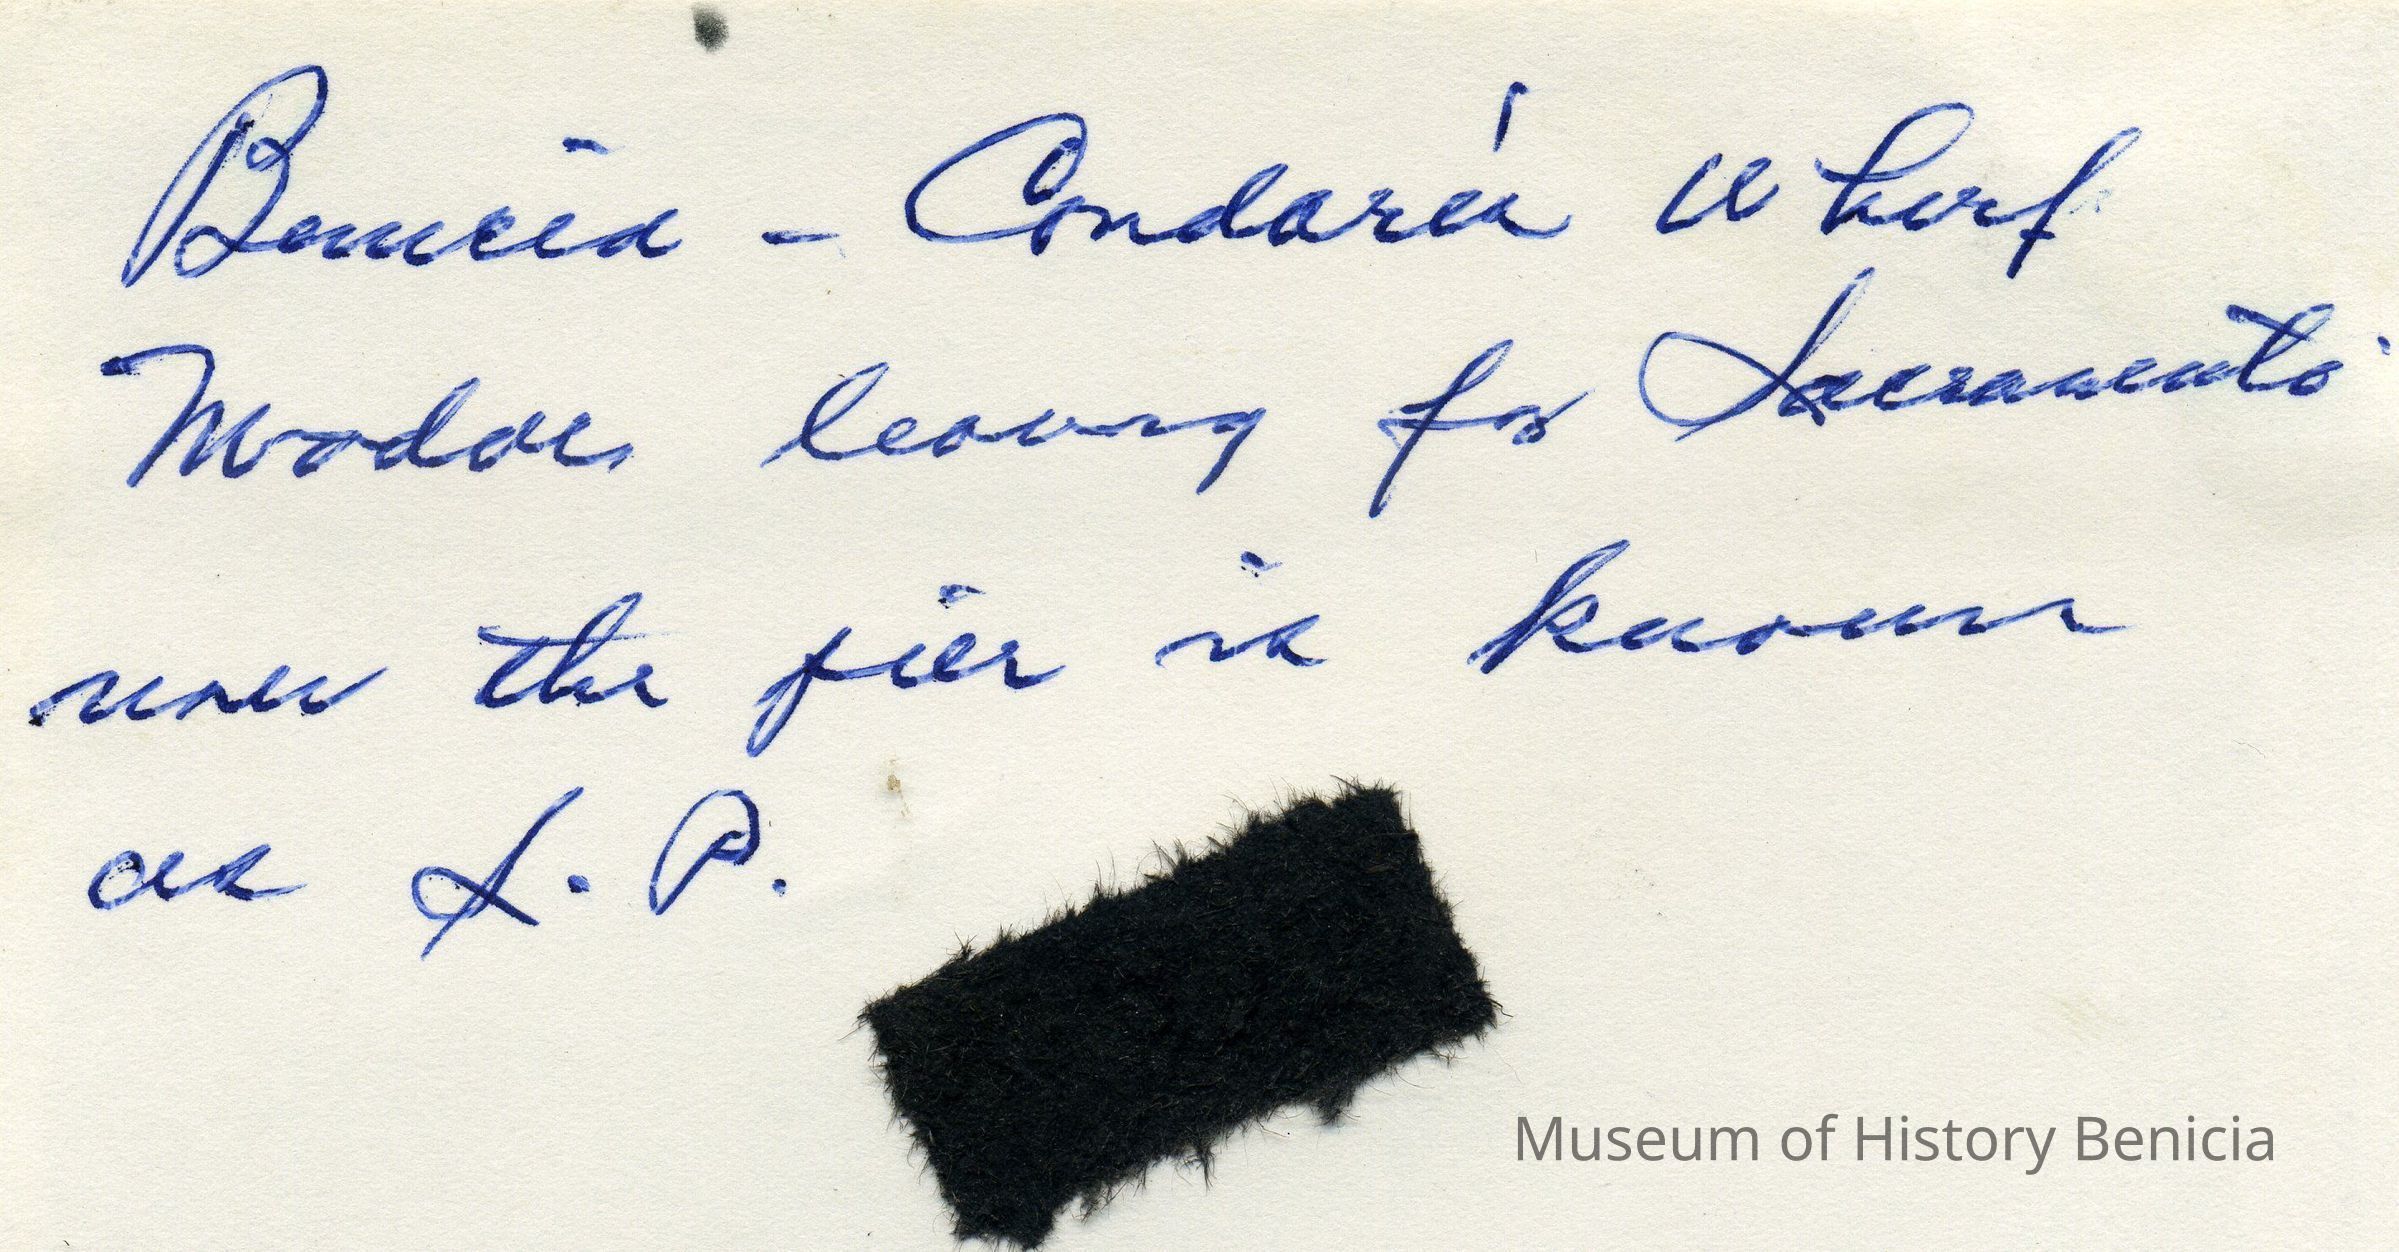 Benicia - Condara's Wharf
Modoc leaving for Sacramento
now the pier is known
as S. P.
Museum of History Benicia